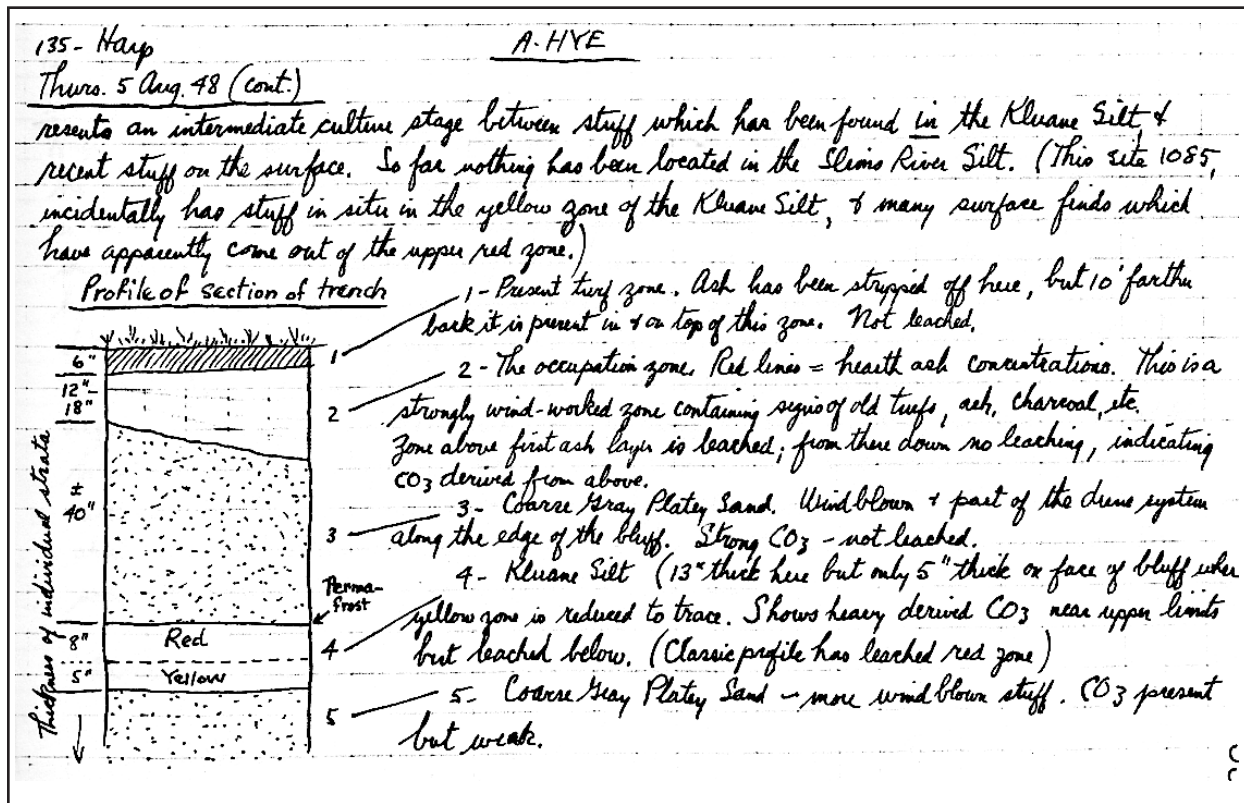 135- Harp
A-HYE
Thurs. 5 Aug. 48 (cont.)
resents an intermediate culture stage between stuff which has been found in the Kluane Silt, &
recent stuff on the surface. So far nothing has been located in the Slims River Silt. (This site 1085,
incidentally has stuff in situ in the yellow zone of the Kluane Silt, & many surface finds which
have apparently come out of the upper red zone.)
Profile of section of trench
1- Present turf zone. Ash has been stripped off here, but 10' farther
back it is present in & on top of this zone. Not leached.
2- The occupation zone. Red lines = hearth ash concentrations. This is a
strongly wind-worked zone containing signs of old turfs, ash, charcoal, etc.
Zone above first ash layer is leached; from there down no leaching, indicating
CO3 derived from above.
3- Coarse Gray Platey Sand. Windblown & part of the dune system
along the edge of the bluff. Strong CO3 - not leached.
4- Kluane Silt (13" thick here but only 5" thick on face of bluff wher
yellow zone is reduced to trace. Shows heavy derived CO3 near upper limits
but leached below. (Classic profile has leached red zone)
5- Coarse Gray Platey Sand - more windblown stuff. CO3 present
but weak.
Thickness of individual strata
6"
12"-
18"
±
40"
8"
5"
Red
Yellow
Perma-
frost
1
2
3
4
5